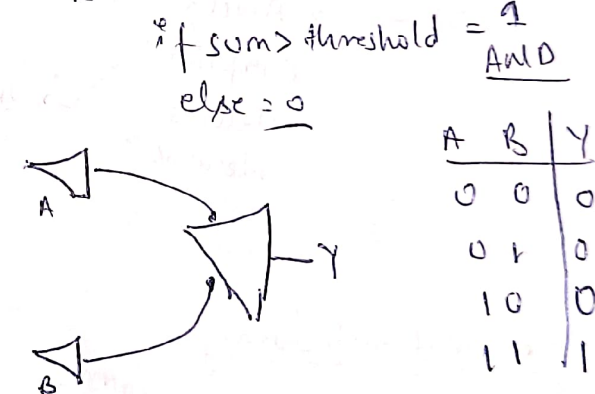 if sum > threshold = 1
AND
else = 0
A B Y
0 0 0
0 1 0
1 0 0
1 1 1
A
Y
B